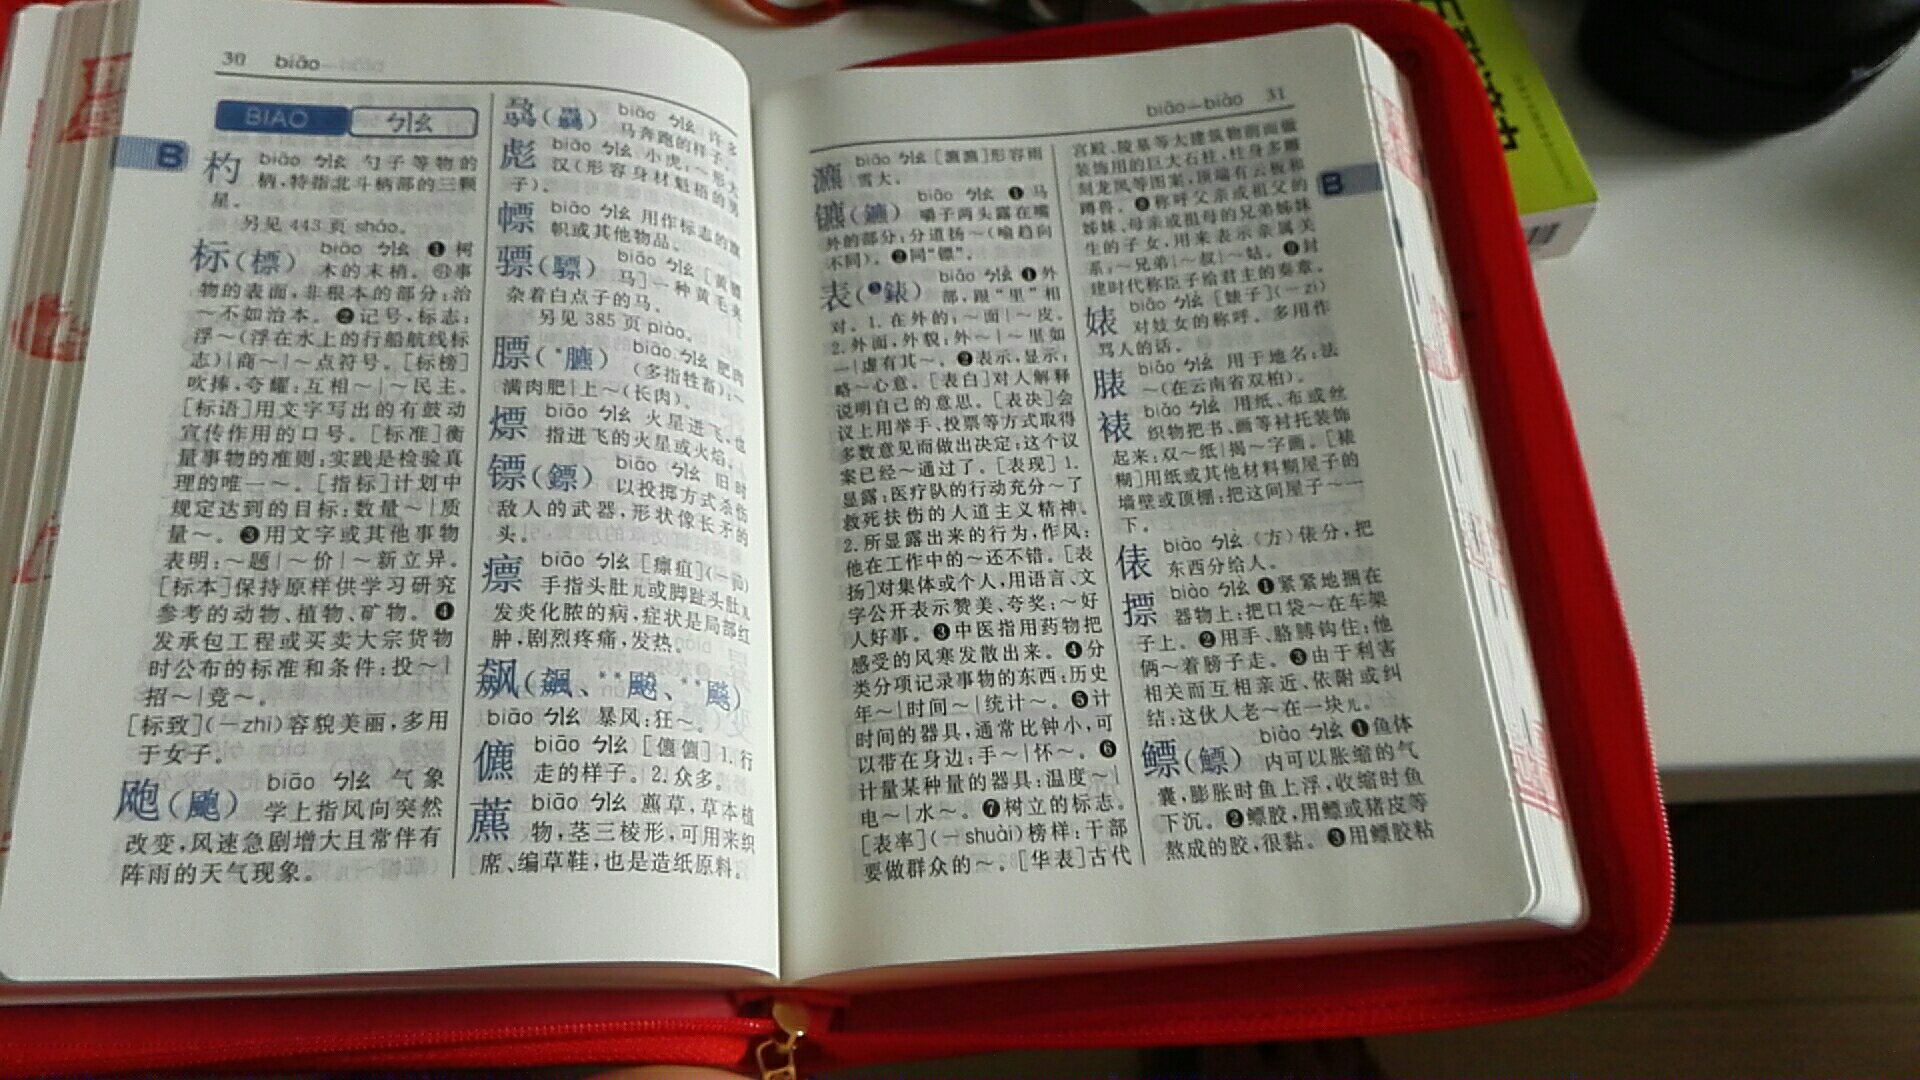 30 biāo
BIAO ㄅㄧㄠ
B
杓 biāo ㄅㄧㄠ 勺子等物的
柄,特指北斗柄部的三颗
星。
另见 443 页 sháo。
标(標) biāo ㄅㄧㄠ ❶树
木的末梢。㊀事
物的表面,非根本的部分:治
～不如治本。❷记号,标志:
浮～(浮在水上的行船航线标
志)|商～|～点符号。[标榜]
吹捧,夸耀:互相～|～民主。
[标语]用文字写出的有鼓动
宣传作用的口号。[标准]衡
量事物的准则:实践是检验真
理的唯一～。[指标]计划中
规定达到的目标:数量～|质
量～。❸用文字或其他事物
表明:～题|～价|～新立异。
[标本]保持原样供学习研究
参考的动物、植物、矿物。❹
发承包工程或买卖大宗货物
时公布的标准和条件:投～|
招～|竞～。
[标致](—zhi)容貌美丽,多用
于女子。
飑(颮) biāo ㄅㄧㄠ 气象
学上指风向突然
改变,风速急剧增大且常伴有
阵雨的天气现象。
骉(驫) biāo ㄅㄧㄠ 许多
马奔跑的样子。
彪 biāo ㄅㄧㄠ 小虎:～形大
汉(形容身材魁梧的男
子)。
幖 biāo ㄅㄧㄠ 用作标志的旗
帜或其他物品。
骠(驃) biāo ㄅㄧㄠ [黄骠
马]一种黄毛夹
杂着白点子的马。
另见 385 页 piào。
膘(*臕) biāo ㄅㄧㄠ 肥肉
(多指牲畜):～
满肉肥|上～(长肉)。
熛 biāo ㄅㄧㄠ 火星迸飞,也
指迸飞的火星或火焰。
镖(鏢) biāo ㄅㄧㄠ 旧时
以投掷方式杀伤
敌人的武器,形状像长矛的
头。
瘭 biāo ㄅㄧㄠ [瘭疽](—jū)
手指头肚儿或脚趾头肚儿
发炎化脓的病,症状是局部红
肿,剧烈疼痛,发热。
飙(飆、**飈、**飇)
biāo ㄅㄧㄠ 暴风:狂～。
儦 biāo ㄅㄧㄠ [儦儦]1.行
走的样子。2.众多。
藨 biāo ㄅㄧㄠ 藨草,草本植
物,茎三棱形,可用来织
席、编草鞋,也是造纸原料。
biāo—biào 31
B
瀌 biāo ㄅㄧㄠ [瀌瀌]形容雨
雪大。
镳(鑣) biāo ㄅㄧㄠ ❶马
嚼子两头露在嘴
外的部分:分道扬～(喻趋向
不同)。❷同“镖”。
表(❺錶) biǎo ㄅㄧㄠ ❶外
部,跟“里”相
对。1.在外的:～面|～皮。
2.外面,外貌:外～|～里如
一|虚有其～。❷表示,显示:
略～心意。[表白]对人解释
说明自己的意思。[表决]会
议上用举手、投票等方式取得
多数意见而做出决定:这个议
案已经～通过了。[表现]1.
显露:医疗队的行动充分～了
救死扶伤的人道主义精神。
2.所显露出来的行为,作风:
他在工作中的～还不错。[表
扬]对集体或个人,用语言、文
字公开表示赞美、夸奖:～好
人好事。❸中医指用药物把
感受的风寒发散出来。❹分
类分项记录事物的东西:历史
年～|时间～|统计～。❺计
时间的器具,通常比钟小,可
以带在身边:手～|怀～。❻
计量某种量的器具:温度～|
电～|水～。❼树立的标志。
[表率](—shuài)榜样:干部
要做群众的～。[华表]古代
宫殿、陵墓等大建筑物前面做
装饰用的巨大石柱,柱身多雕
刻龙凤等图案,顶端有云板和
蹲兽。❽称呼父亲或祖父的
姊妹、母亲或祖母的兄弟姊妹
生的子女,用来表示亲属关
系:～兄弟|～叔|～姑。❾封
建时代称臣子给君主的奏章。
婊 biǎo ㄅㄧㄠ [婊子](—zi)
对妓女的称呼。多用作
骂人的话。
脿 biǎo ㄅㄧㄠ 用于地名:法
～(在云南省双柏)。
裱 biǎo ㄅㄧㄠ 用纸、布或丝
织物把书、画等衬托装饰
起来:双～纸|揭～字画。[裱
糊]用纸或其他材料糊屋子的
墙壁或顶棚:把这间屋子～一
下。
俵 biào ㄅㄧㄠ 〈方〉俵分,把
东西分给人。
摽 biào ㄅㄧㄠ ❶紧紧地捆在
器物上:把口袋～在车架
子上。❷用手、胳膊钩住:他
俩～着膀子走。❸由于利害
相关而互相亲近、依附或纠
结:这伙人老～在一块儿。
鳔(鰾) biào ㄅㄧㄠ ❶鱼体
内可以胀缩的气
囊,膨胀时鱼上浮,收缩时鱼
下沉。❷鳔胶,用鳔或猪皮等
熬成的胶,很黏。❸用鳔胶粘